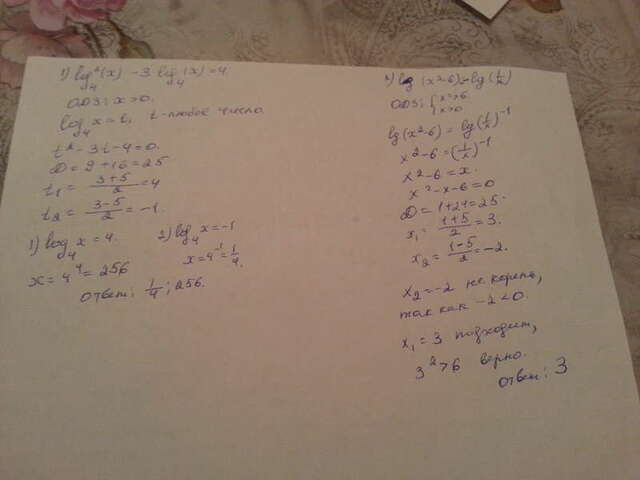 1) log₄²(x) - 3 log₄(x) = 4.
ОДЗ: x>0.
log₄ x = t, t - любое число.
t² - 3t - 4 = 0.
D = 9 + 16 = 25
t₁ = (3+5)/2 = 4
t₂ = (3-5)/2 = -1.
1) log₄ x = 4.
x = 4⁴ = 256
2) log₄ x = -1
x = 4⁻¹ = 1/4.
ответ: 1/4; 256.
lg (x²-6) = -lg(1/x)
ОДЗ: { x²>6
x>0
lg(x²-6) = lg(1/x)⁻¹
x²-6 = (1/x)⁻¹
x²-6 = x.
x²-x-6=0
D = 1+24=25.
x₁ = (1+5)/2 = 3.
x₂ = (1-5)/2 = -2.
x₂ = -2 не корень,
так как -2<0.
x₁ = 3 подходит,
3²>6 верно.
ответ: 3